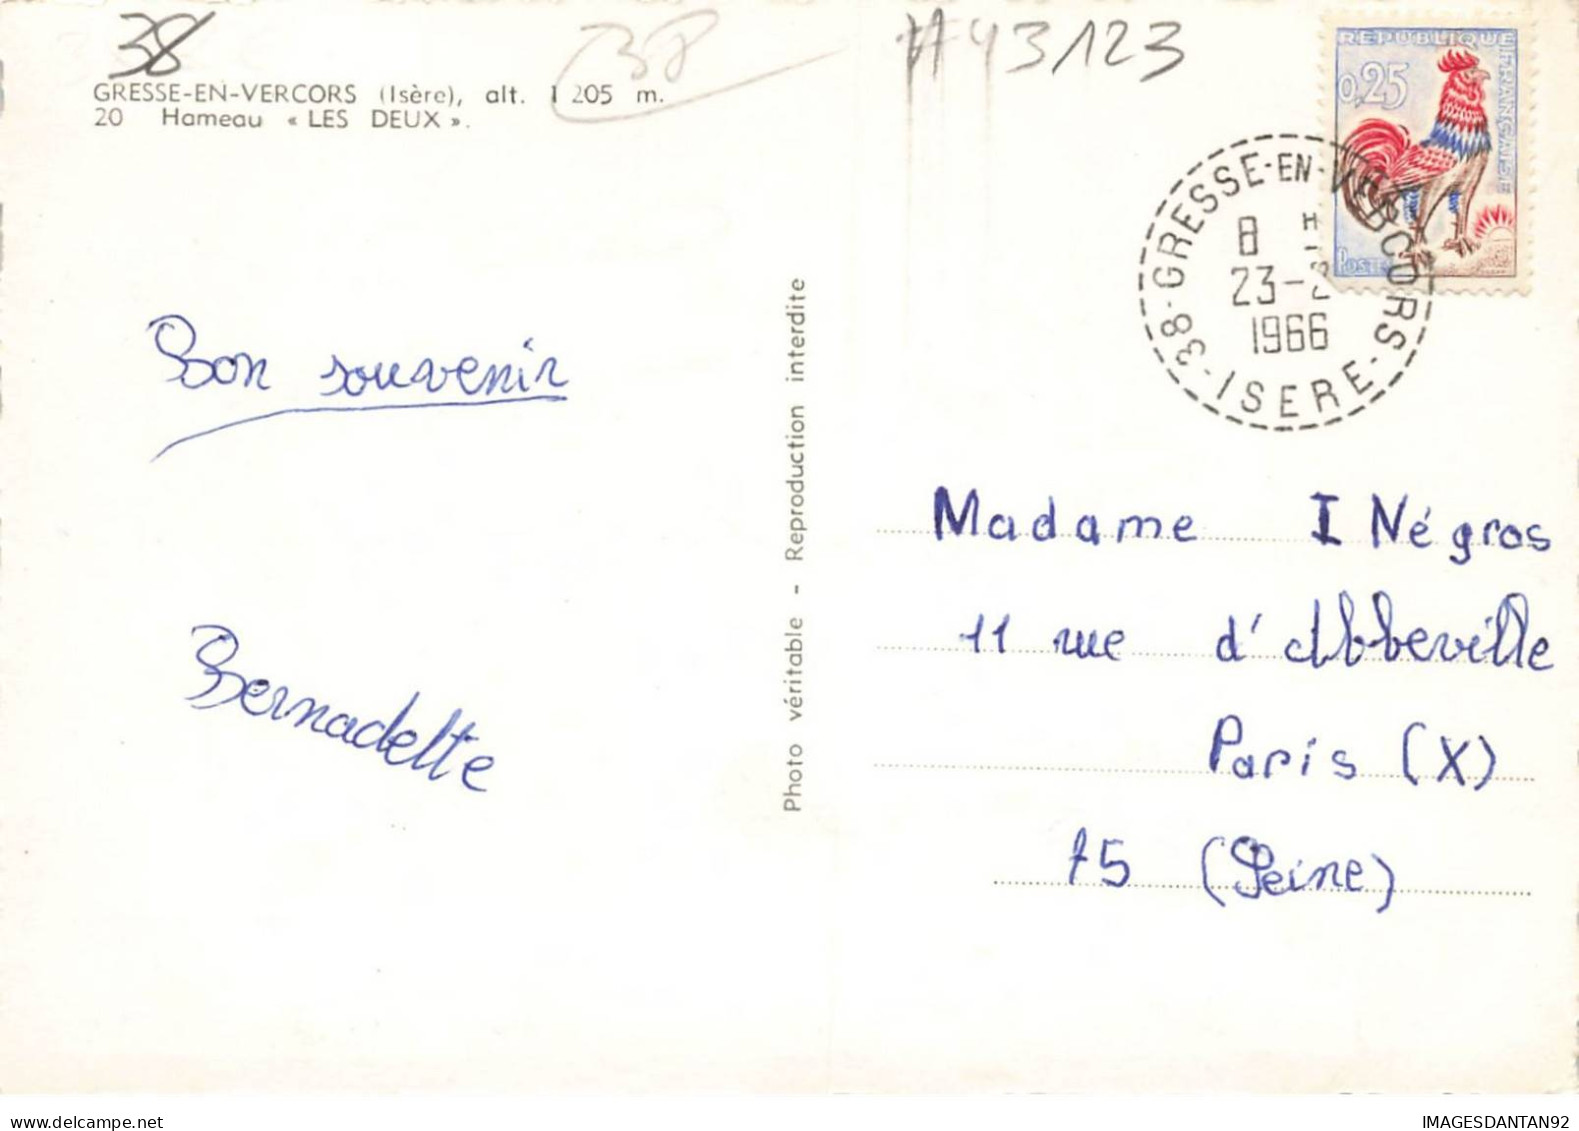 38
38
#43123
GRESSE-EN-VERCORS (Isère), alt. 1 205 m.
20 Hameau « LES DEUX ».
RÉPUBLIQUE FRANÇAISE
0,25
POSTES
38-GRESSE-EN-VERCORS-ISERE-
8 H
23-
1966
Bon souvenir
Bernadette
Photo véritable - Reproduction interdite
Madame I Négros
11 rue d'Abbeville
Paris (X)
75 (Seine)
www.delcampe.net
IMAGESDANTAN92